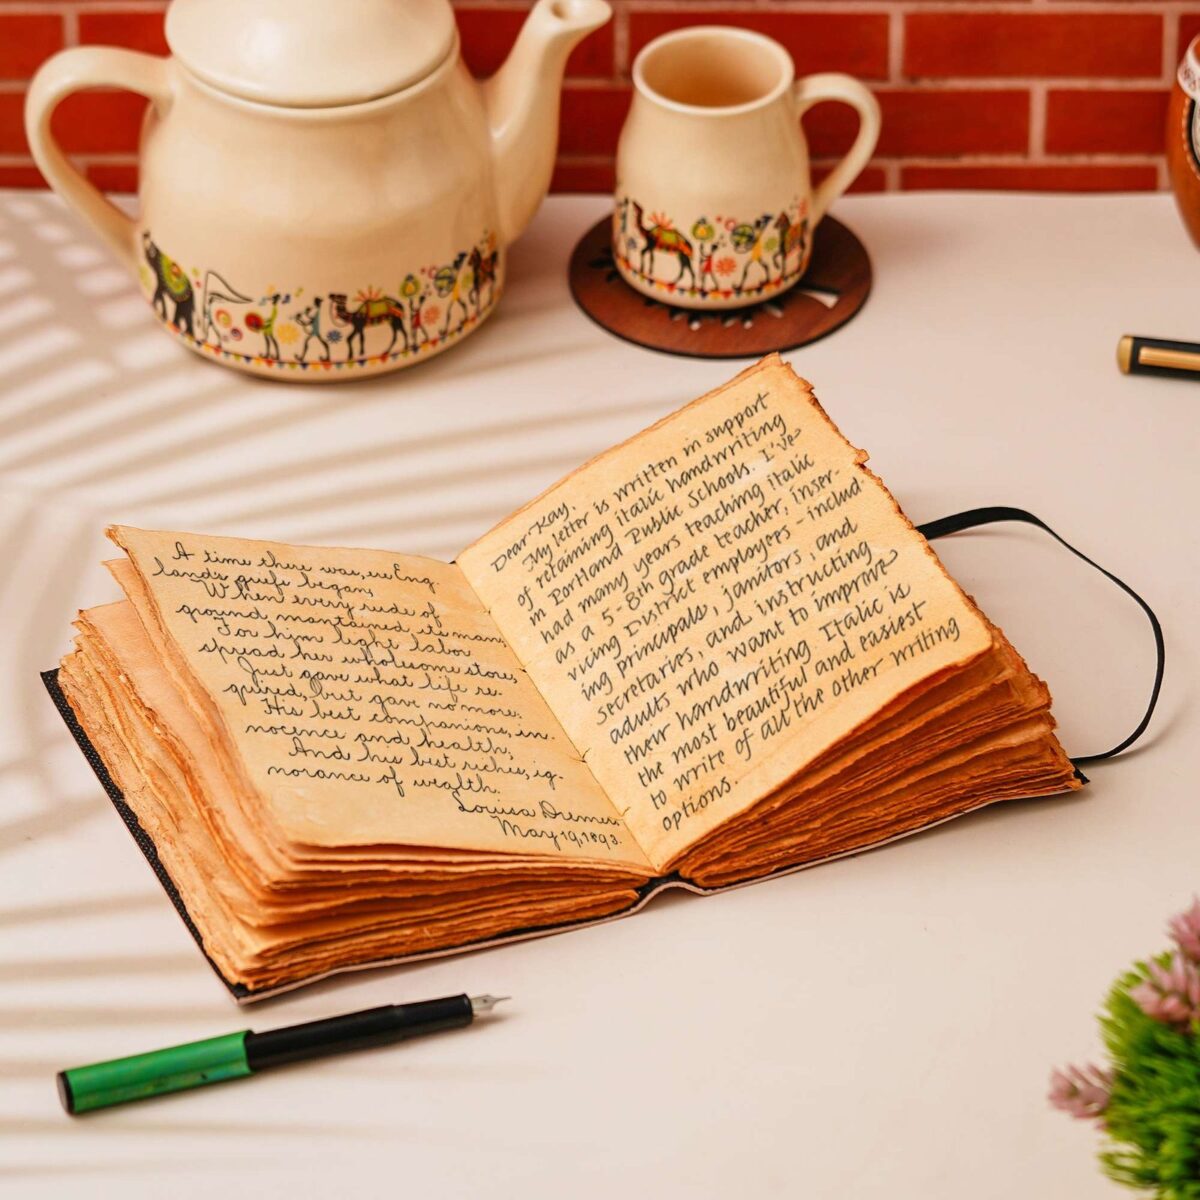 A time there was, ere Eng-
land's griefs began,
When every rude of
ground maintained its man;
For him light labor
spread her wholesome store,
Just gave what life re-
quired, but gave no more:
His best companions, in-
nocence and health,
And his best riches, ig-
norance of wealth.
Louisa
May 19, 1893.
Dear Kay,
My letter is written in support
of retaining italic handwriting
in Portland Public Schools. I've
had many years teaching italic
as a 5-8th grade teacher, inser-
vicing District employees - includ-
ing principals, janitors, and
secretaries, and instructing
adults who want to improve
their handwriting. Italic is
the most beautiful and easiest
to write of all the other writing
options.